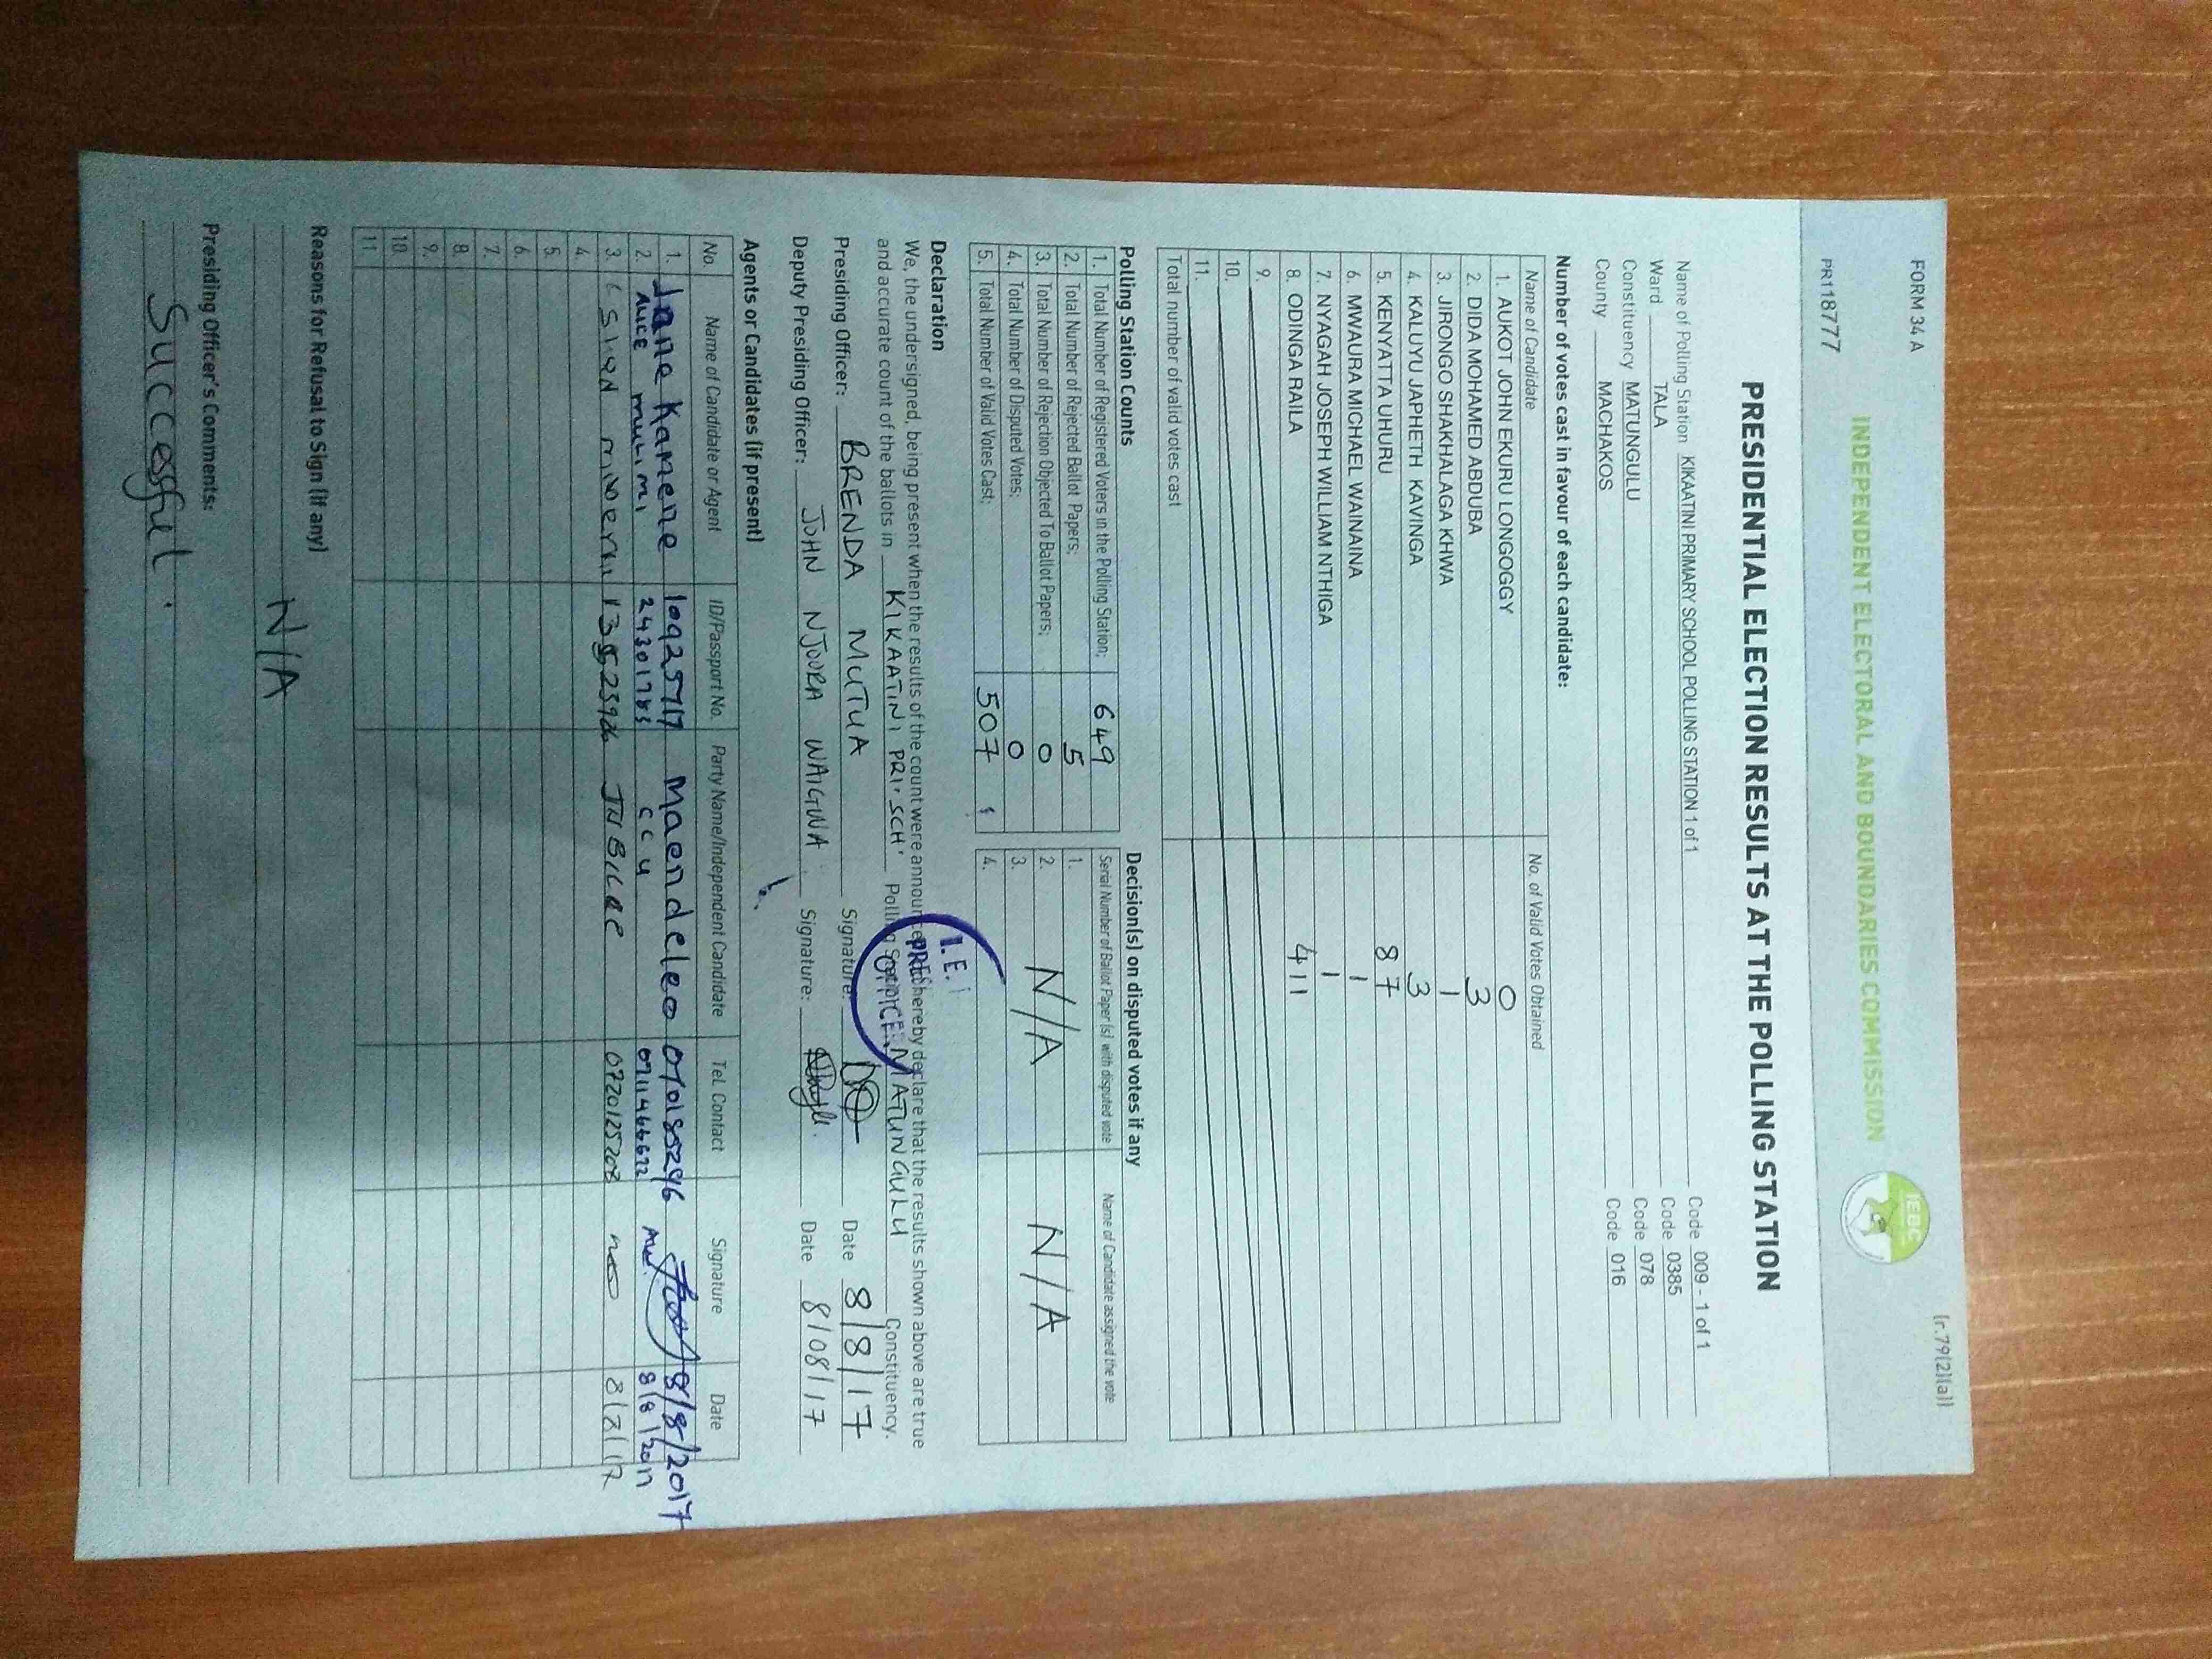 FORM 34 A
(r.79(2)(a))
INDEPENDENT ELECTORAL AND BOUNDARIES COMMISSION
IEBC
PR118777
PRESIDENTIAL ELECTION RESULTS AT THE POLLING STATION
Name of Polling Station KIKAATINI PRIMARY SCHOOL POLLING STATION 1 of 1 Code 009 - 1 of 1
Ward TALA Code 0385
Constituency MATUNGULU Code 078
County MACHAKOS Code 016
Number of votes cast in favour of each candidate:
Name of Candidate No. of Valid Votes Obtained
1. AUKOT JOHN EKURU LONGOGGY 0
2. DIDA MOHAMED ABDUBA 3
3. JIRONGO SHAKHALAGA KHWA 1
4. KALUYU JAPHETH KAVINGA 3
5. KENYATTA UHURU 87
6. MWAURA MICHAEL WAINAINA 1
7. NYAGAH JOSEPH WILLIAM NTHIGA 1
8. ODINGA RAILA 411
9.
10.
11.
Total number of valid votes cast
Polling Station Counts
1. Total Number of Registered Voters in the Polling Station; 649
2. Total Number of Rejected Ballot Papers; 5
3. Total Number of Rejection Objected To Ballot Papers; 0
4. Total Number of Disputed Votes; 0
5. Total Number of Valid Votes Cast; 507
Decision(s) on disputed votes if any
Serial Number of Ballot Paper (s) with disputed vote Name of Candidate assigned the vote
1.
2. N/A N/A
3.
4.
Declaration
We, the undersigned, being present when the results of the count were announced, hereby declare that the results shown above are true
and accurate count of the ballots in KIKAATINI PRI. SCH. Polling Station in MATUNGULU Constituency.
Presiding Officer: BRENDA MUTUA Signature: Date 8/8/17
Deputy Presiding Officer: JOHN NJORA WAIGWA Signature: Date 8/08/17
Agents or Candidates (if present)
No. Name of Candidate or Agent ID/Passport No. Party Name/Independent Candidate Tel. Contact Signature Date
1. Jane Kamene 10925717 Maendeleo 8/8/2017
2. ALICE mulimi CCU 8/8/2017
3. 0720125208 8/8/17
4.
5.
6.
7.
8.
9.
10.
11.
Reasons for Refusal to Sign (if any)
N/A
Presiding Officer's Comments:
Successful.